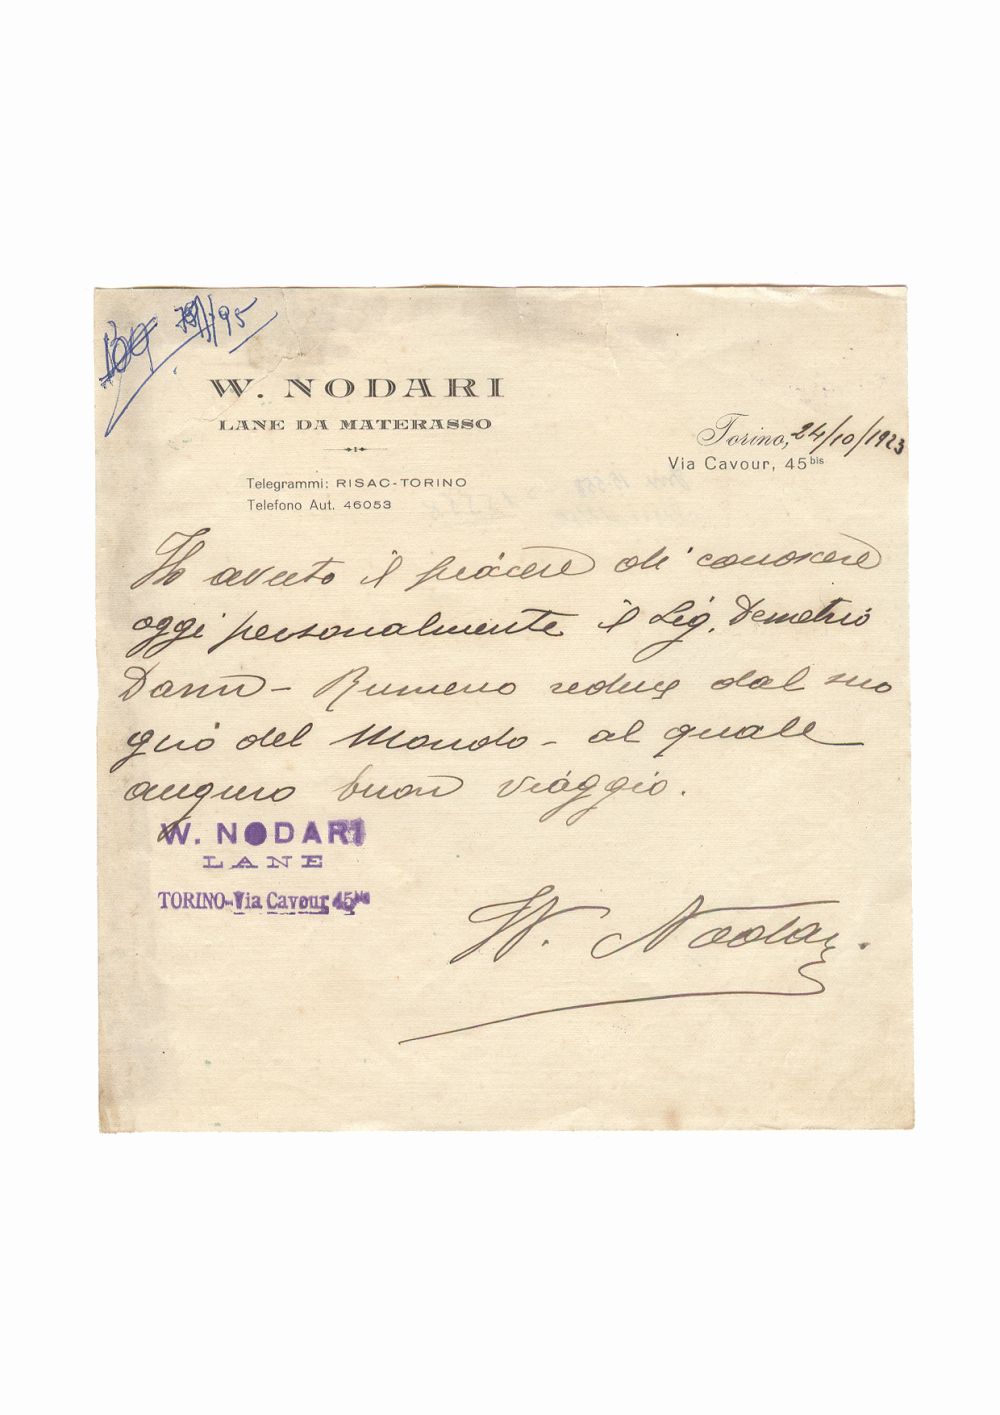 W. NODARI
LANE DA MATERASSO
Torino, 24/10/1923
Via Cavour, 45 bis
Telegrammi: RISAC-TORINO
Telefono Aut. 46053
Ho avuto il piacere di conoscere
oggi personalmente il Sig. Demetrio
Dann - Rumeno reduce dal suo
giro del Mondo - al quale
auguro buon viaggio.
W. NODARI
LANE
TORINO-Via Cavour 45 bis
W. Nodari.